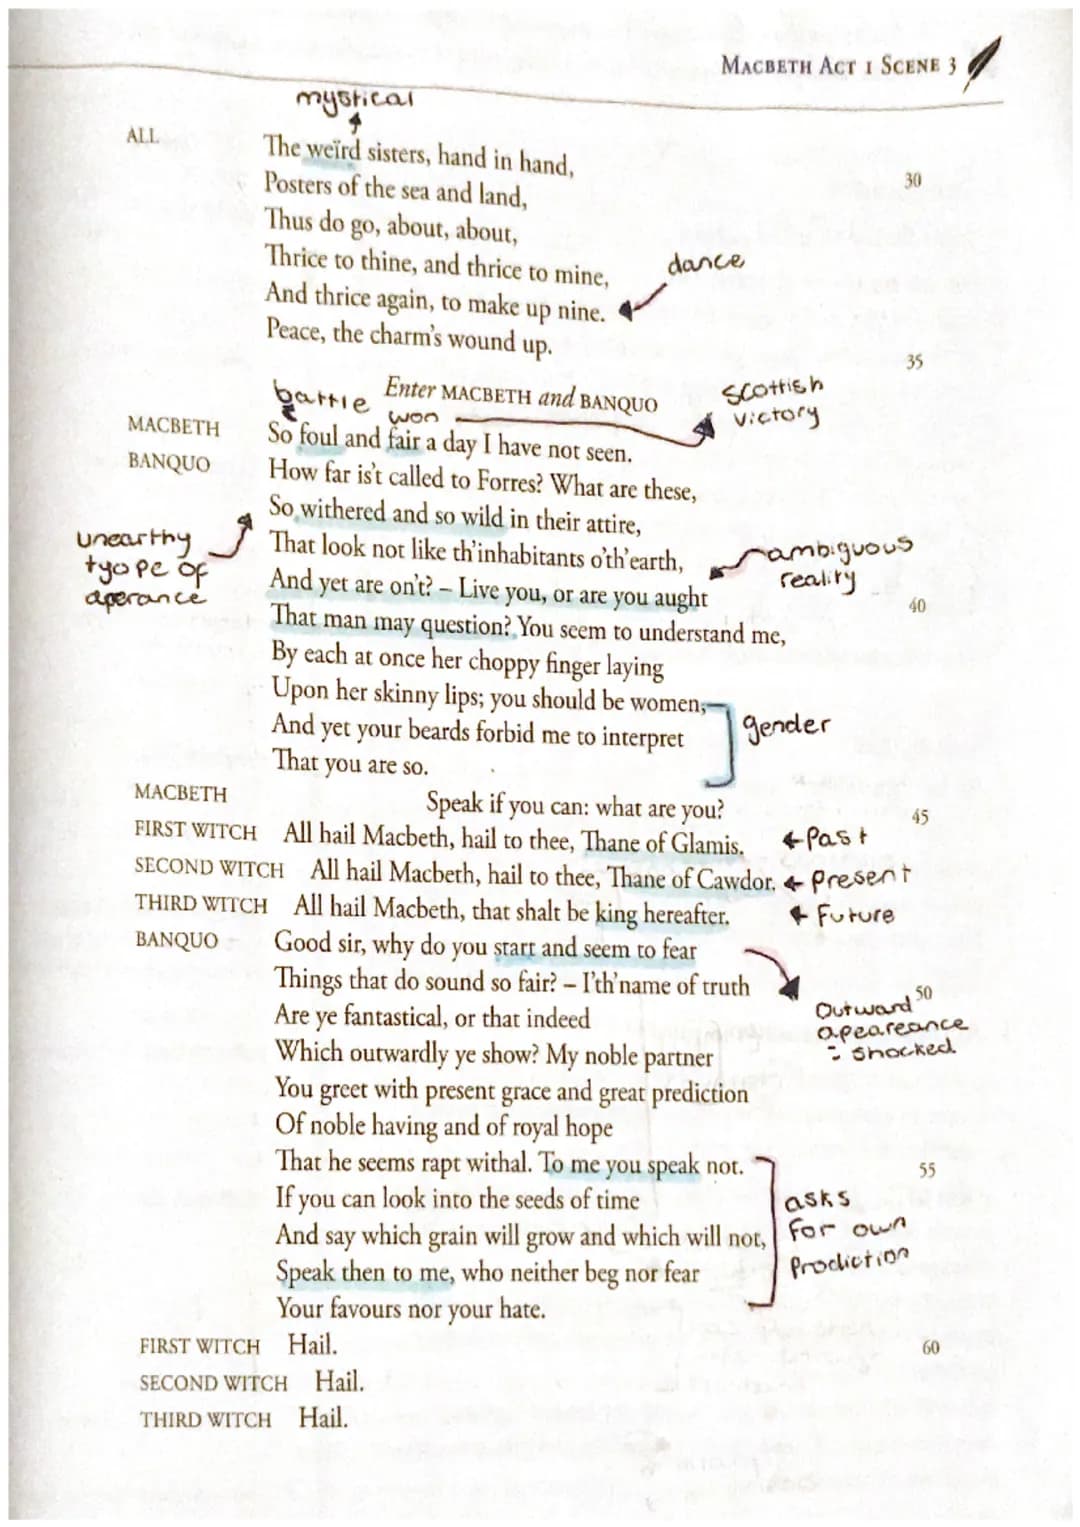 MACBETH ACT 1 SCENE 3
mystical
ALL The weïrd sisters, hand in hand,
Posters of the sea and land, 30
Thus do go, about, about,
Thrice to thine, and thrice to mine, dance
And thrice again, to make up nine.
Peace, the charm's wound up. 35
Enter MACBETH and BANQUO
battle won
scottish
victory
MACBETH So foul and fair a day I have not seen.
BANQUO How far is't called to Forres? What are these,
So withered and so wild in their attire,
That look not like th'inhabitants o'th'earth,
unearthy
tyope of
aperance
ambiguous
reality
And yet are on't? – Live you, or are you aught 40
That man may question? You seem to understand me,
By each at once her choppy finger laying
Upon her skinny lips; you should be women,
And yet your beards forbid me to interpret gender
That you are so.
MACBETH Speak if you can: what are you? 45
FIRST WITCH All hail Macbeth, hail to thee, Thane of Glamis. ←Past
SECOND WITCH All hail Macbeth, hail to thee, Thane of Cawdor. ← present
THIRD WITCH All hail Macbeth, that shalt be king hereafter. ← Future
BANQUO Good sir, why do you start and seem to fear
Things that do sound so fair? – I'th'name of truth 50
Outward
apeareance
= shocked
Are ye fantastical, or that indeed
Which outwardly ye show? My noble partner
You greet with present grace and great prediction
Of noble having and of royal hope
That he seems rapt withal. To me you speak not. 55
If you can look into the seeds of time
And say which grain will grow and which will not,
Speak then to me, who neither beg nor fear
Your favours nor your hate.
asks
for own
Prodiction
FIRST WITCH Hail. 60
SECOND WITCH Hail.
THIRD WITCH Hail.